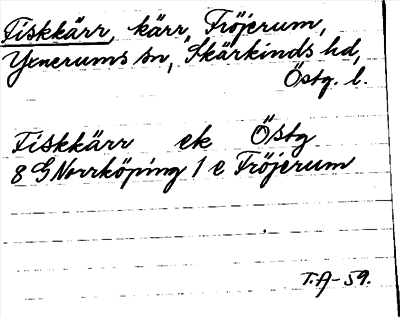 Fiskkärr, kärr, Fröjerum,
Yxnerums sn, Skärkinds hd,
Östg. l.
Fiskkärr ek Östg
8 G Norrköping 1 e Fröjerum
T.A-59.